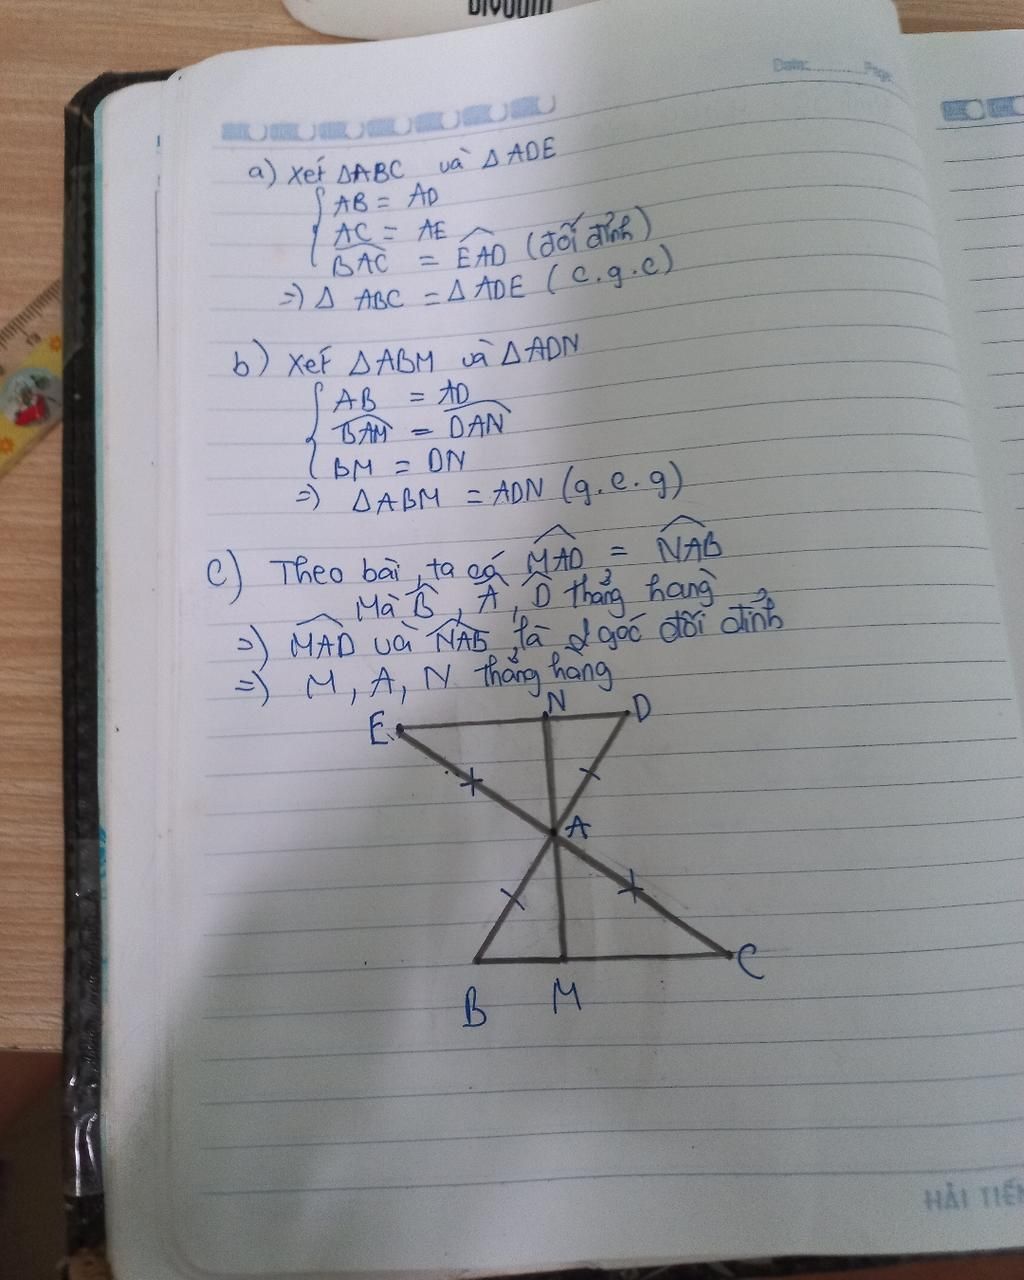 DIVOOM
Date: Page:
a) Xét ΔABC và ΔADE
AB = AD
AC = AE
\widehat{BAC} = \widehat{EAD} (đối đỉnh)
=) Δ ABC = Δ ADE (c.g.c)
b) Xét ΔABM và ΔADN
AB = AD
\widehat{BAM} = \widehat{DAN}
BM = DN
=) ΔABM = ADN (g.c.g)
c) Theo bài, ta có \widehat{MAD} = \widehat{NAB}
Mà \widehat{B}, \widehat{A}, \widehat{D} thẳng hàng
=) \widehat{MAD} và \widehat{NAB} là 2 góc đối đỉnh
=) M, A, N thẳng hàng
E N D
A
B M C
HẢI TIẾN